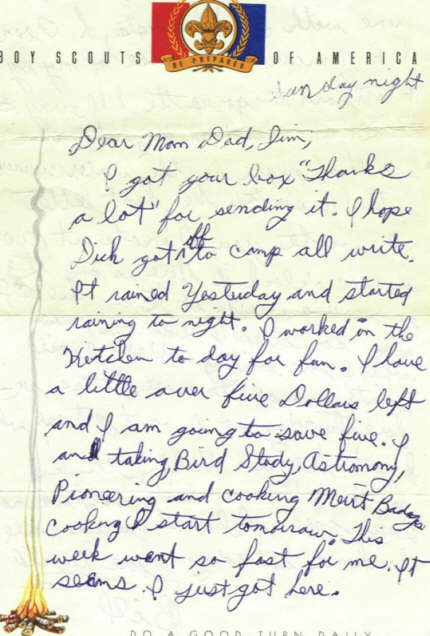 BOY SCOUTS OF AMERICA
BE PREPARED
Sunday night
Dear Mom Dad, Jim,
I got your box "Thanks
a lot" for sending it. I hope
Dick got off to camp all write.
It rained Yesterday and started
raining to night. I worked in the
Ketchen to day for fun. I have
a little over five Dollars left
and I am going to save five. I
and taking, Bird Study, Astronomy,
Pioneering and cooking Merit Badge
cooking I start tomorrow. This
week went so fast for me. It
seems I just got here.
DO A GOOD TURN DAILY